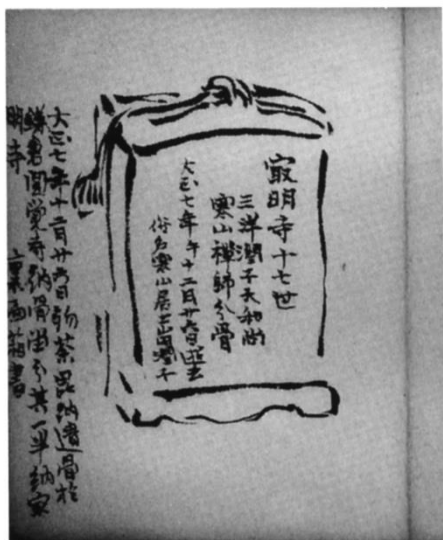 㝡明寺十七世
三洋潤子大和尚
寒山禅師分骨
大正七年午十二月廿六日逝去
俗名寒山居士 潤子
大正七年十二月廿 日 荼毘納遺骨於
鎌倉圓覚寺納骨堂分其一半納㝡
明寺 裏面 書